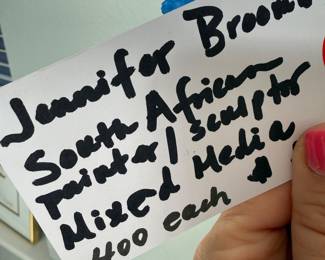 Jennifer Broom
South African
Painter / Sculptor
Mixed Media
400 each